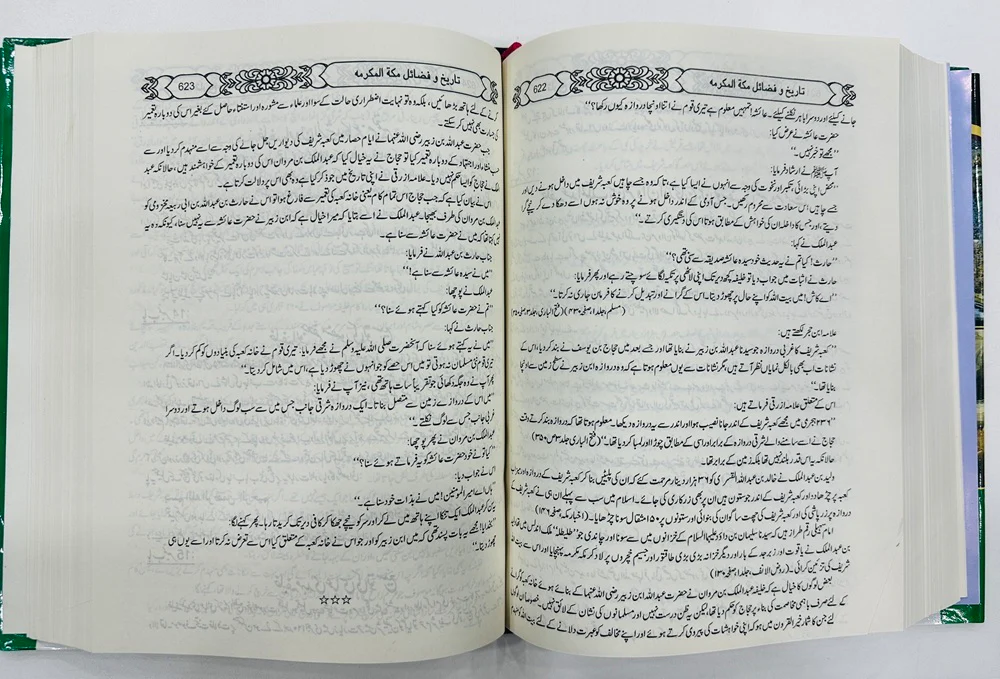 622 تاریخ و فضائل مکة المکرمه
جانے کیلئے اور دوسرا باہر نکلنے کیلئے۔ عائشہ! تمہیں معلوم ہے تیری قوم نے اتنا اونچا دروازہ کیوں رکھا؟‘‘
حضرت عائشہ نے عرض کیا:
’’مجھے تو خبر نہیں۔‘‘
آپ ﷺ نے ارشاد فرمایا:
’’محض اپنی بڑائی، تکبر اور نخوت کی وجہ سے انہوں نے ایسا کیا ہے، تا کہ وہ جسے چاہیں کعبہ شریف میں داخل ہونے دیں اور
جسے چاہیں اس سعادت سے محروم رکھیں۔ جس آدمی کے اندر داخل ہونے پر وہ خوش نہ ہوں اسے دھکا دے کر نیچے گرا
دیتے، اور جس کا داخلہ ان کی خواہش کے مطابق ہوتا اس کی دستگیری کرتے۔‘‘
عبدالملک نے کہا:
’’حارث! کیا تم نے یہ حدیث خود سیدہ عائشہ صدیقہ سے سنی تھی؟‘‘
حارث نے اثبات میں جواب دیا تو خلیفہ کچھ دیر تک اپنی لاٹھی پر ٹیک لگائے سوچتے رہے اور پھر فرمایا:
’’اے کاش! میں بیت اللہ کو اپنے حال پر چھوڑ دیتا۔ اس کے گرانے اور تبدیل کرنے کا فرمان جاری نہ کرتا۔‘‘
(مسلم، جلد۱، صفحہ ۴۳۰) (فتح الباری، جلد۳، صفحہ ۳۵۰)
علامہ ابن حجر لکھتے ہیں:
’’کعبہ شریف کا غربی دروازہ جو سیدنا عبداللہ بن زبیر نے بنایا تھا اور جسے بعد میں حجاج بن یوسف نے بند کر دیا، اس کے
نشانات اب بھی بالکل نمایاں نظر آتے ہیں، مگر نشانات سے یوں معلوم ہوتا ہے کہ وہ دروازہ ابن زبیر نے سطح زمین سے اونچا
بنایا تھا۔‘‘
اس کے متعلق علامہ ازرقی فرماتے ہیں:
’’۲۳۶ ہجری میں مجھے کعبہ شریف کے اندر جانا نصیب ہوا اور اندر سے یہ دروازہ دیکھا۔ معلوم ہوتا تھا کہ دروازہ بند کرتے وقت
حجاج نے اسے سامنے والے شرقی دروازہ کے برابر اور اسی کے مطابق چوڑا اور لمبا کر دیا تھا۔‘‘ (فتح الباری جلد۳، ص ۳۵۰)
حالانکہ یہ اس قدر بلند نہیں تھا بلکہ زمین کے برابر تھا۔
ولید بن عبدالملک نے خالد بن عبداللہ القسری کو ۳۶ ہزار دینار مرحمت کئے کہ ان کی پلیٹیں بنا کر کعبہ شریف کے دروازہ اور میزاب
کعبہ پر چڑھا دو اور کعبہ شریف کے اندر جو ستون ہیں ان پر بھی زرکاری کی جائے۔ اسلام میں سب سے پہلے ان ہی نے کعبہ کے
دروازہ پر زر پاشی کی اور کعبہ شریف کی چھت ساگوان کی بنوائی اور ستونوں پر ۱۵۰ مثقال سونا چڑھایا۔ (اخبار مکہ، صفحہ ۱۴۶)
امام سہیلی رقمطراز ہیں کہ سیدنا سلیمان بن داؤد علیہما السلام کے خزانوں میں سے سونا اور چاندی جو ’’طلیطلہ‘‘ ملک اندلس میں تھا ولید
بن عبدالملک نے یاقوت اور زبرجد کے ہار اور دیگر خزانہ بڑی بڑی طاقتور اور جسیم خچروں پر لاد کر مکہ مکرمہ پہنچایا اور اس سے بیت اللہ
شریف کی تزئین کرائی۔ (روض الانف، جلد۱، صفحہ ۱۳۰)
بعض لوگوں کا خیال ہے کہ خلیفہ عبدالملک بن مروان نے حضرت عبداللہ ابن زبیر رضی اللہ عنہما کے بنائے ہوئے خانہ کعبہ کو گرانے
کے لئے صرف باہمی مخاصمت کی بناء پر حجاج کو حکم دیا تھا، لیکن یہ ظن درست نہیں اور مسلمانوں کی شان کے لائق نہیں۔ خصوصاً ان لوگوں
کے لئے جن کا شمار خیر القرون میں ہو کہ اپنی خواہشات کی پیروی کرتے ہوئے اور اپنے مخالف کو عبرت دلانے کے لئے بیت اللہ کو
623 تاریخ و فضائل مکة المکرمه
گرنے کے لئے ہاتھ بڑھائیں، بلکہ وہ تو نہایت اضطراری حالت کے سوا اور علماء سے مشورہ اور استفتاء حاصل کئے بغیر اس کی دوبارہ تعمیر
کی جسارت بھی نہیں کر سکتے۔
جب حضرت عبداللہ بن زبیر رضی اللہ عنہما نے ایام حصار میں کعبہ شریف کی دیواریں جل جانے کی وجہ سے اسے منہدم کر دیا اور سے
اور اجتہاد کے دوبارہ تعمیر کیا تو حجاج نے یہ خیال کیا کہ عبدالملک بن مروان اس کی دوبارہ تعمیر کے خواہشمند ہیں، حالانکہ عبد
الملک نے حجاج کو ایسا حکم نہیں دیا۔ علامہ ازرقی نے اپنی تاریخ میں جو ذکر کیا ہے وہ بھی اس پر دلالت کرتا ہے۔
اس نے بیان کیا ہے کہ جب حجاج اس تمام کام یعنی خانہ کعبہ کی تعمیر سے فارغ ہوا تو اس نے حارث بن عبداللہ بن ابی ربیعہ مخزومی کو
عبدالملک بن مروان کی طرف بھیجا۔ عبدالملک نے اسے بتایا کہ میرا خیال ہے کہ ابن زبیر نے حضرت عائشہ سے یہ نہیں سنا، کیونکہ وہ یہ
کہتا تھا کہ میں نے حضرت عائشہ سے سنا ہے۔
جناب حارث بن عبداللہ نے فرمایا:
’’میں نے سیدہ عائشہ سے سنا ہے!‘‘
عبدالملک نے پوچھا:
’’تم نے حضرت عائشہ کو کیا کہتے ہوئے سنا؟‘‘
جناب حارث نے کہا:
’’میں نے یہ کہتے ہوئے سنا کہ آنحضرت صلی اللہ علیہ وسلم نے مجھے فرمایا۔ تیری قوم نے خانہ کعبہ کی بنیادوں کو کم کر دیا۔ اگر
تیری قوم نئی مسلمان نہ ہوتی تو میں اس حصے کو جو انہوں نے چھوڑ دیا ہے، اس میں شامل کر دیتا۔‘‘
پھر آپ نے وہ جگہ دکھائی جو تقریباً سات ہاتھ تھی، نیز آپ نے فرمایا:
’’میں اس کے دروازے زمین سے متصل بناتا۔ ایک دروازہ شرقی جانب جس میں سے سب لوگ داخل ہوتے اور دوسرا
غربی جانب جس سے لوگ نکلتے۔‘‘
عبدالملک بن مروان نے پھر پوچھا:
’’کیا تو نے خود حضرت عائشہ کو یہ فرماتے ہوئے سنا؟‘‘
اس نے جواب دیا:
’’ہاں اے امیر المؤمنین! میں نے بذات خود سنا ہے۔‘‘
یہ سن کر عبدالملک ایک تنکا اپنے ہاتھ میں لے کر اور سر کو نیچے جھکا کر کافی دیر تک کریدتا رہا۔ پھر کہنے لگا:
مجھے یہ بات پسند تھی کہ میں ابن زبیر کو اور جو اس نے خانہ کعبہ کے متعلق کیا اس سے تعرض نہ کرتا اور اسے یوں ہی
چھوڑ دیتا۔‘‘
☆☆☆